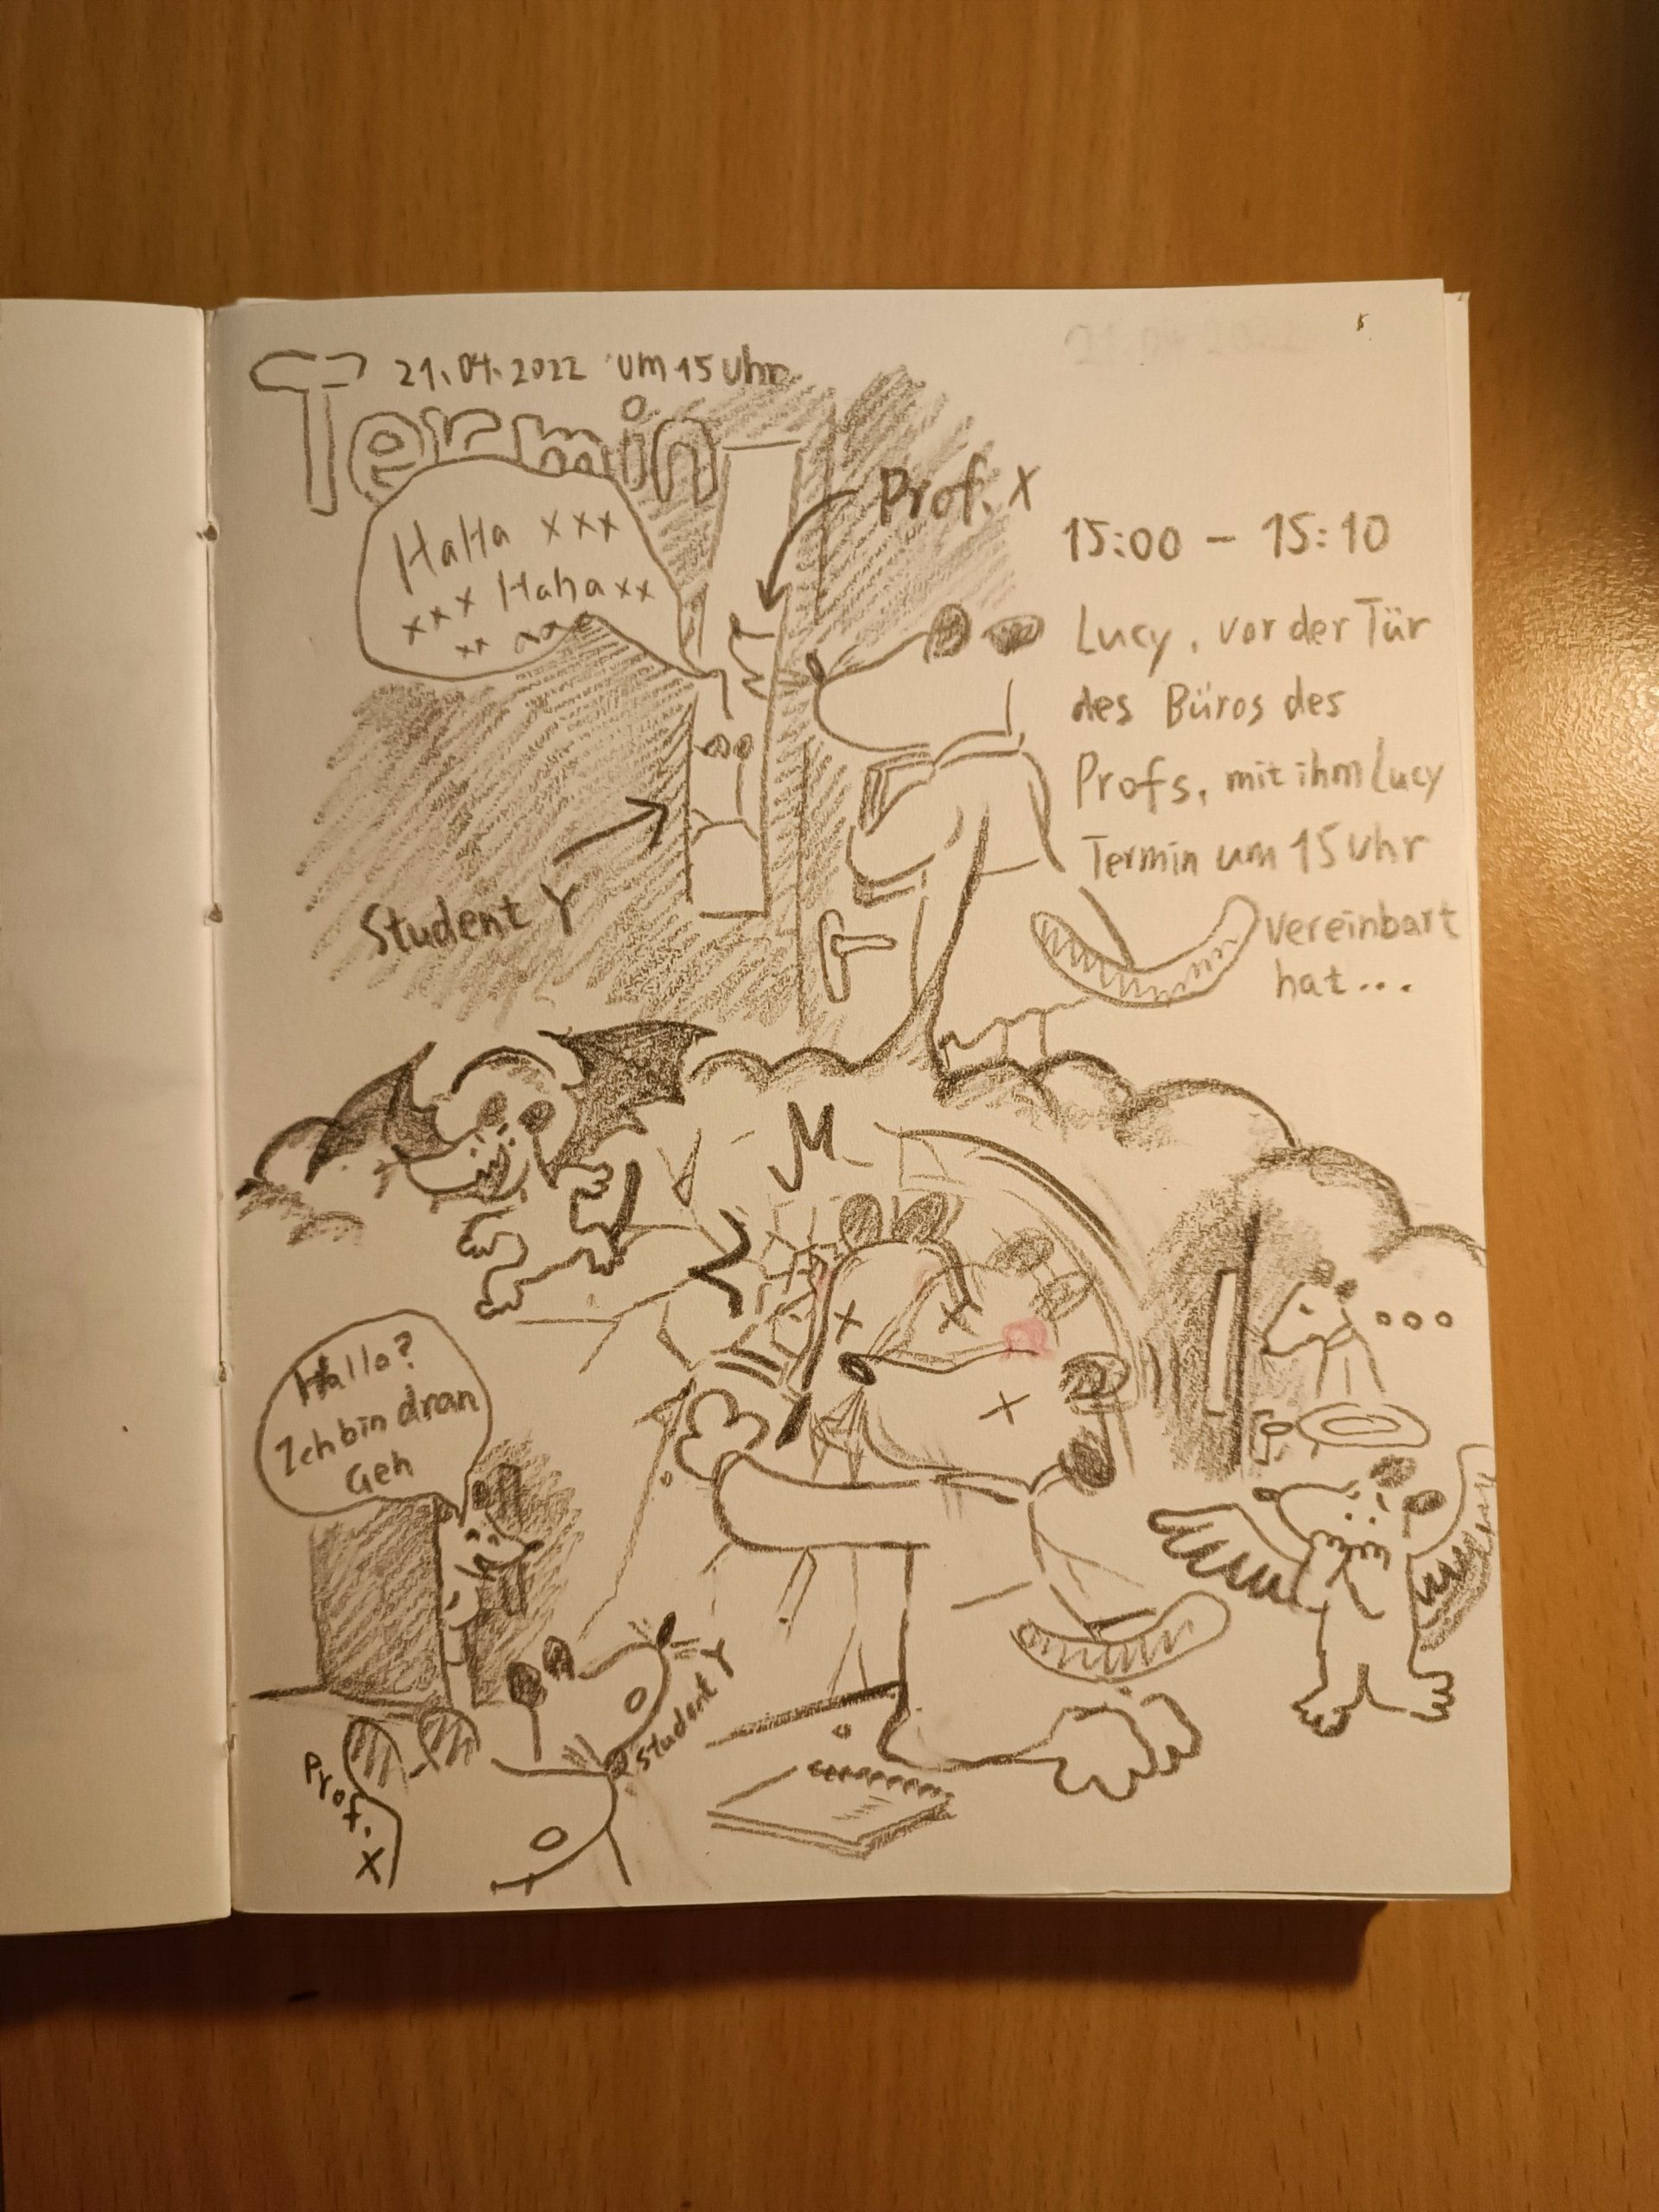 21.04.2022 um 15 Uhr
Termin
HaHa xxx
xxx Haha xx
xx
Prof. X
15:00 – 15:10
Lucy, vor der Tür
des Büros des
Profs, mit ihm Lucy
Termin um 15 Uhr
vereinbart
hat...
Student Y
Hallo?
Ich bin dran
Geh
Student Y
Prof. X